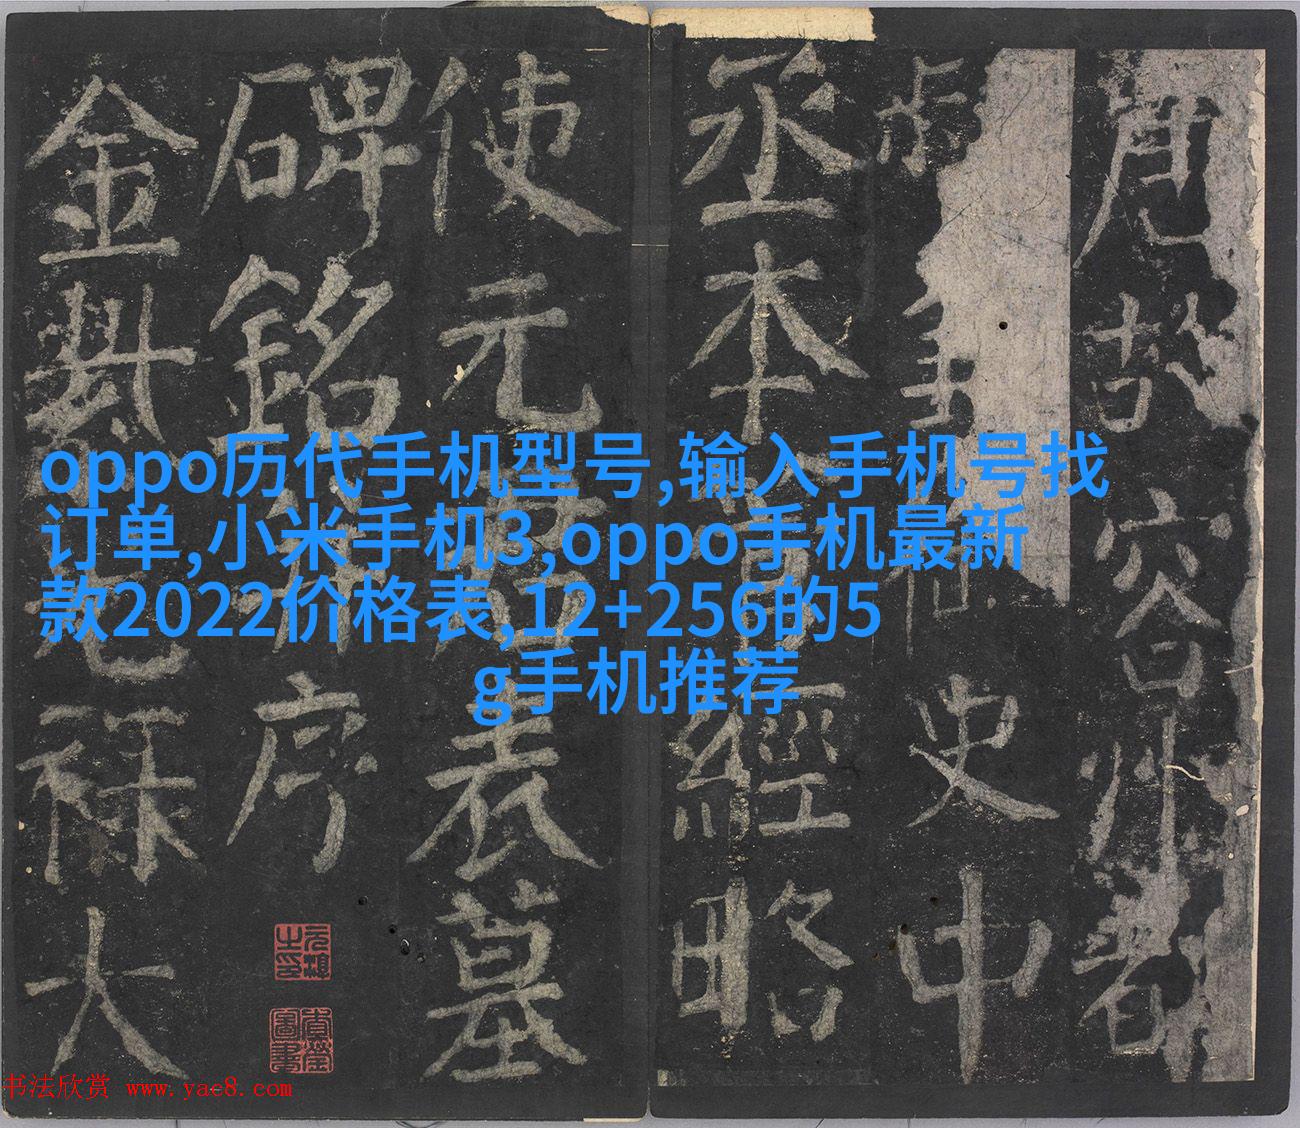 唐故容州都
史中
丞本管經略
使元君表墓
碑銘并序
金紫光祿大
oppo历代手机型号,输入手机号找
订单,小米手机3,oppo手机最新
款2022价格表,12+256的5
g手机推荐
书法欣赏 www.yac8.com